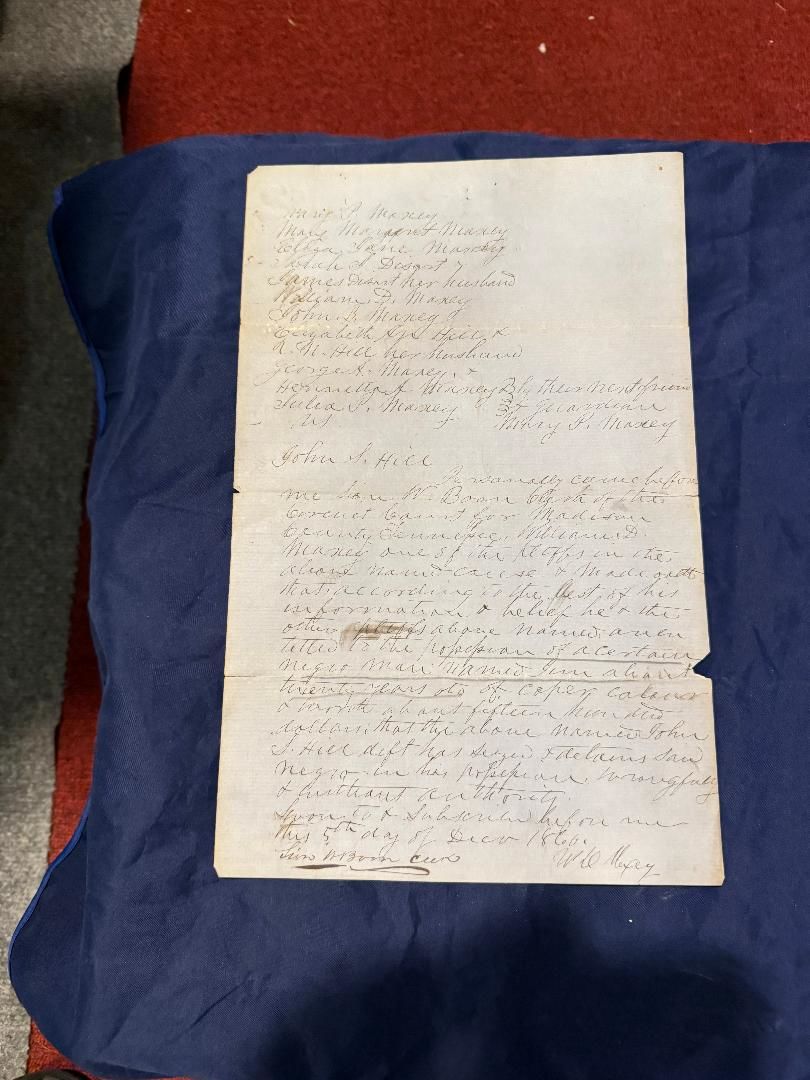 Mary P. Maxey
Mary Margaret Maxey
Eliza Jane Maxey
Sarah S. Disort &
James Disort her husband
William D. Maxey
John S. Maxey
Elizabeth Hill &
R. M. Hill her husband
George A. Maxey &
Henrietta A Maxey By their next friend
Julia P. Maxey & guardian
vs Mary P. Maxey
John S. Hill
Personally came before
me W. Boon Clerk of the
Circuit Court for Madison
County Tennessee, William D.
Maxey one of the pltffs in the
above named cause & made oath
that according to the best of his
information & belief he & the
other pltffs above named are en
titled to the possession of a certain
negro man named Jim about
twenty years old of coper colour
& worth about fifteen hundred
dollars, that the above named John
S. Hill deft has seized & detains said
negro in his possession, wrongfully
& without authority.
Sworn to & Subscribe before me
this 5th day of Decr 1860.
W Boon Clerk W D Maxey